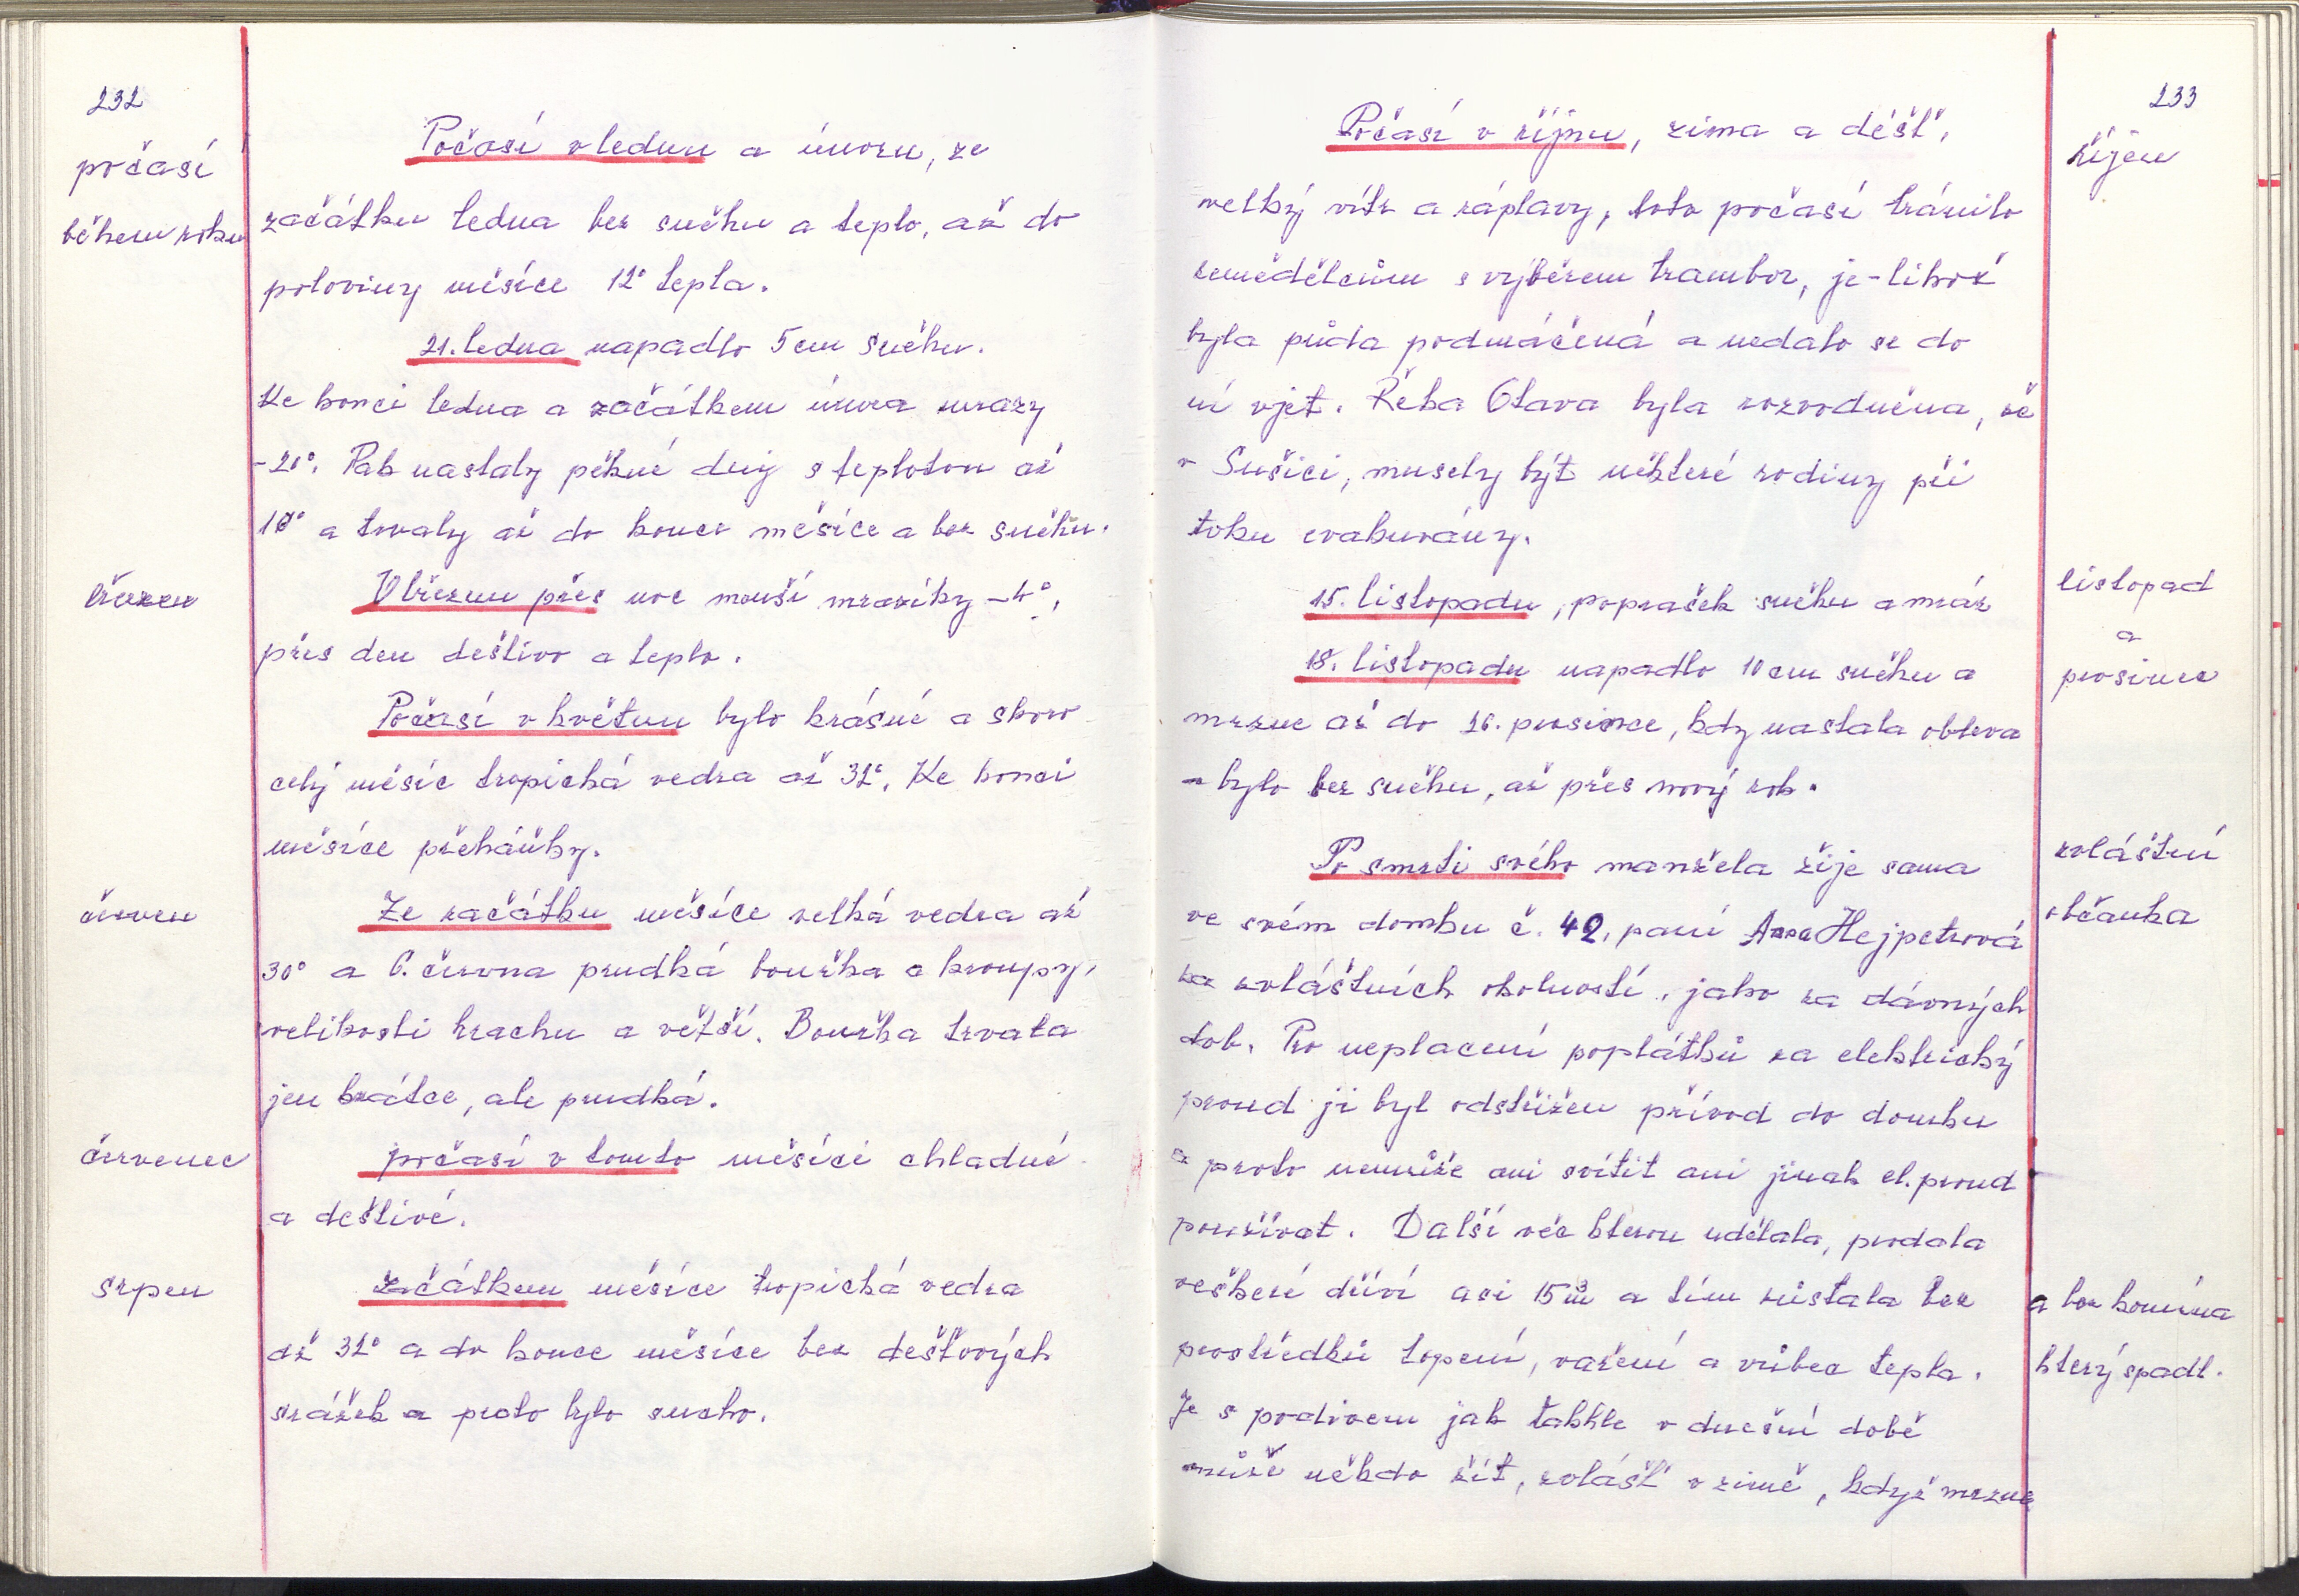 232
počasí
během roku
Počasí v lednu a únoru, ze
začátku ledna bez sněhu a teplo, až do
poloviny měsíce 12° tepla.
21. ledna napadlo 5 cm sněhu.
Ke konci ledna a začátkem února mrazy
-20°. Pak nastaly pěkné dny s teplotou až
10° a trvaly až do konce měsíce a bez sněhu.
březen
V březnu přes noc menší mrazíky -4°,
přes den deštivo a teplo.
Počasí v květnu bylo krásné a skoro
celý měsíc tropická vedra až 32°. Ke konci
měsíce přeháňky.
červen
Ze začátku měsíce velká vedra až
30° a 6. června prudká bouřka a kroupy,
velikosti hrachu a větší. Bouřka trvala
jen krátce, ale prudká.
červenec
počasí v tomto měsíci chladné
a deštivé.
srpen
začátkem měsíce tropická vedra
až 32° a do konce měsíce bez dešťových
srážek a proto bylo sucho.
233
říjen
Počasí v říjnu, zima a déšť,
velký vítr a záplavy, toto počasí tránilo
zemědělcům s výběrem brambor, je-likož
byla půda podmáčená a nedalo se do
ní vjet. Řeka Otava byla rozvodněna, že
v Sušici, musely být některé rodiny při
toku evakuovány.
listopad
a
prosinec
15. listopadu, poprašek sněhu a mráz
18. listopadu napadlo 10 cm sněhu a
mrzne až do 26. prosince, kdy nastala obleva
a bylo bez sněhu, až přes nový rok.
zvláštní
občanka
Po smrti svého manžela žije sama
ve svém domku č. 42, paní Anna Hejpetrová
za zvláštních okolností, jako za dávných
dob. Pro neplacení poplatků za elektrický
proud jí byl odstřižen přívod do domku
a proto nemůže ani svítit ani jinak el. proud
používat. Další věc kterou udělala, prodala
veškeré dříví asi 15 m³ a tím zůstala bez
a bez komína
prostředků topení, vaření a vůbec tepla.
který spadl.
Je s podivem jak takhle v dnešní době
může někdo žít, zvlášť v zimě, když mrzne